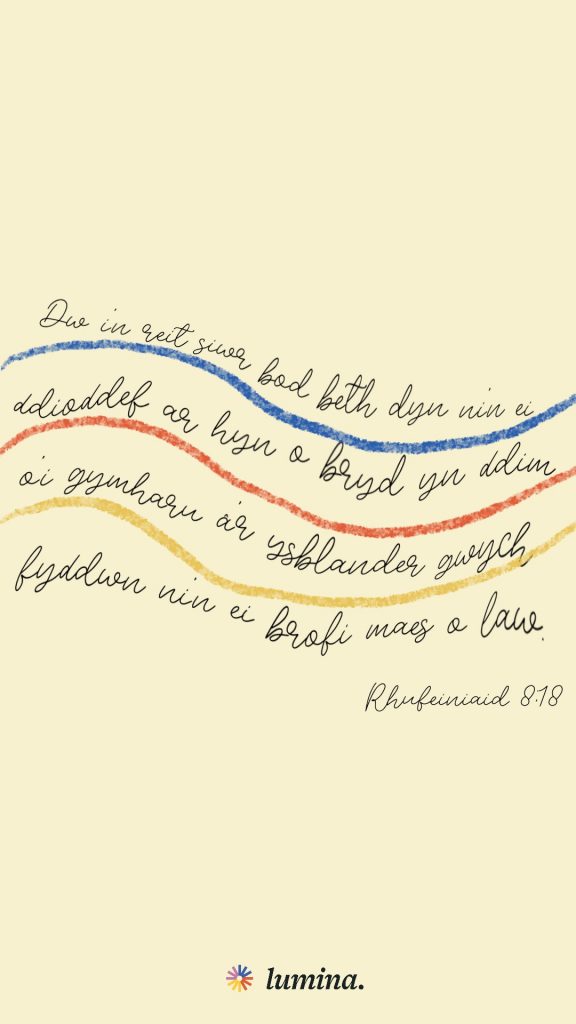 Dw in reit siwr bod beth dyn nin ei
ddioddef ar hyn o bryd yn ddim
o'i gymharu a'r ysblander gwych
fyddwn nin ei brofi maes o law.
Rhufeiniaid 8:18
lumina.